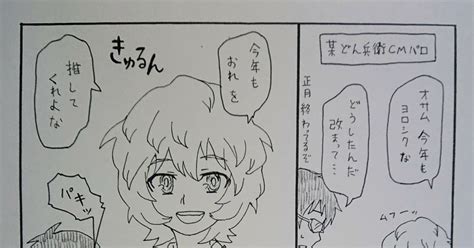 某どん兵衛CMパロ
オサム 今年も
ヨロシクな
どうしたんだ
改まって…
正月終わってるぞ
ムフー
きゅるん
今年も
おれを
推して
くれよな
パキッ